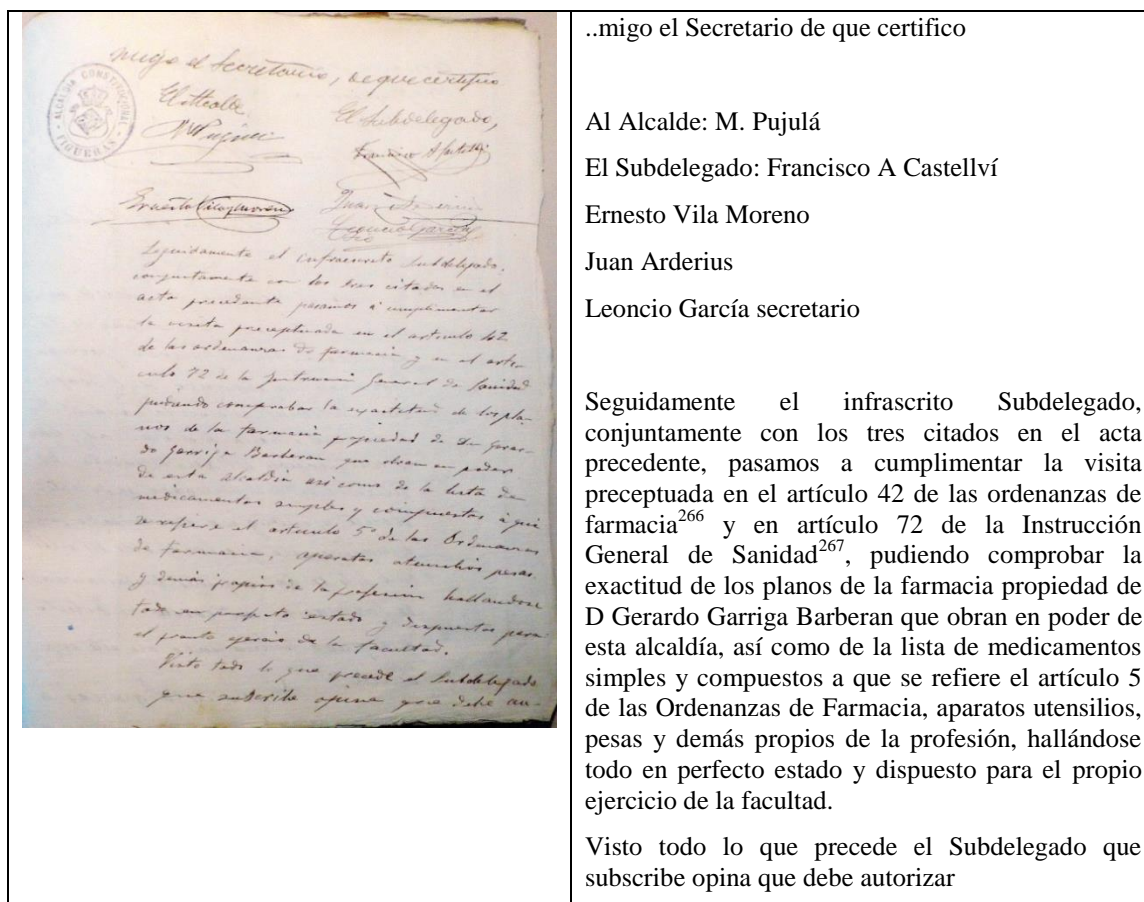 ALCALDIA CONSTITUCIONAL
FIGUERAS
migo el Secretario, de que certifico
El Alcalde
El Subdelegado,
M Pujulá
Francisco A Castellví
Ernesto Vila Moreno
Juan
Leoncio García
Seguidamente el infraescrito Subdelegado,
conjuntamente con los tres citados en el
acta precedente pasamos á cumplimentar
la visita preceptuada en el artículo 42
de las ordenanzas de farmacia y en el artí-
culo 72 de la Instrucción General de Sanidad
pudiendo comprobar la exactitud de los pla-
nos de la farmacia propiedad de Dn Gerar-
do Garriga Barberan que obran en poder
de esta alcaldía así como de la lista de
medicamentos simples y compuestos á que
se refiere el artículo 5º de las Ordenanzas
de Farmacia, aparatos utensilios pesas
y demás propios de la profesión hallandose
todo en perfecto estado y dispuestos para
el pronto ejercicio de la facultad.
Visto todo lo que precede el Subdelegado
que subscribe opina que debe au-
..migo el Secretario de que certifico
Al Alcalde: M. Pujulá
El Subdelegado: Francisco A Castellví
Ernesto Vila Moreno
Juan Arderius
Leoncio García secretario
Seguidamente el infrascrito Subdelegado,
conjuntamente con los tres citados en el acta
precedente, pasamos a cumplimentar la visita
preceptuada en el artículo 42 de las ordenanzas de
farmacia266 y en artículo 72 de la Instrucción
General de Sanidad267, pudiendo comprobar la
exactitud de los planos de la farmacia propiedad de
D Gerardo Garriga Barberan que obran en poder de
esta alcaldía, así como de la lista de medicamentos
simples y compuestos a que se refiere el artículo 5
de las Ordenanzas de Farmacia, aparatos utensilios,
pesas y demás propios de la profesión, hallándose
todo en perfecto estado y dispuesto para el propio
ejercicio de la facultad.
Visto todo lo que precede el Subdelegado que
subscribe opina que debe autorizar